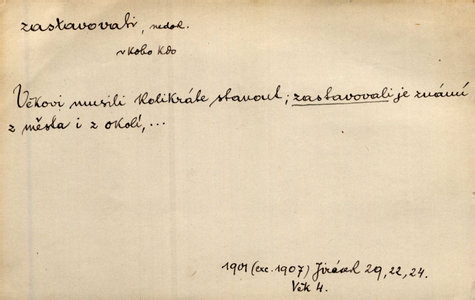 zastavovati, nedok.
koho kdo
Věkovi musili kolikráte stanout; zastavovali je známí
z města i z okolí,...
1901 (exc. 1907) Jirásek 29, 22, 24.
Věk 4.